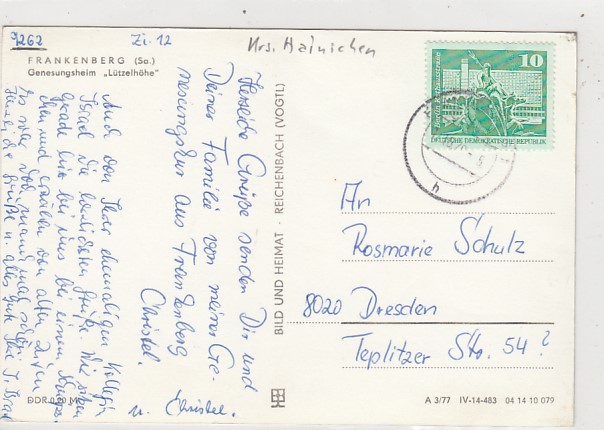 9262
Zi. 12
Krs. Hainichen
FRANKENBERG (Sa.)
Genesungsheim „Lützelhöhe"
Herzliche Grüße senden Dir und
Deiner Familie von meiner Ge-
nesungskur aus Frankenberg
Christel.
Auch von Ihrer ehemaligen Kollegin
die herzlichsten Grüße. Wir sitzen
gerade hier bei uns bei einem
und erzählen von alten Zeiten
u. Christel.
DDR 0,20 M
BILD UND HEIMAT · REICHENBACH (VOGTL)
10
DEUTSCHE DEMOKRATISCHE REPUBLIK
h
An
Rosmarie Schulz
8020 Dresden
Teplitzer Str. 54?
A 3/77 IV-14-483 04 14 10 079